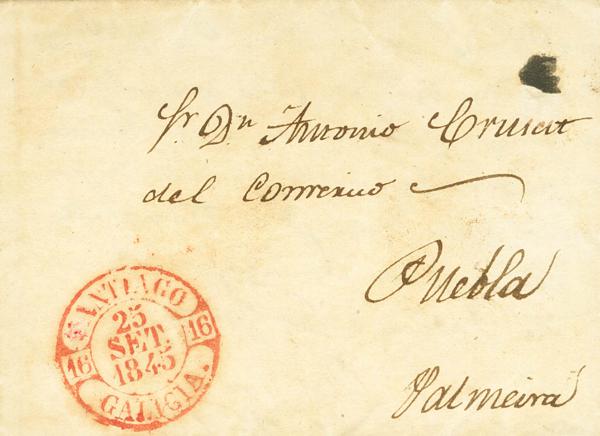 Sr. Dn. Antonio Cruset
del Comercio
Puebla
Palmeira
SANTIAGO
16 16
25
SET.
1845
GALICIA.